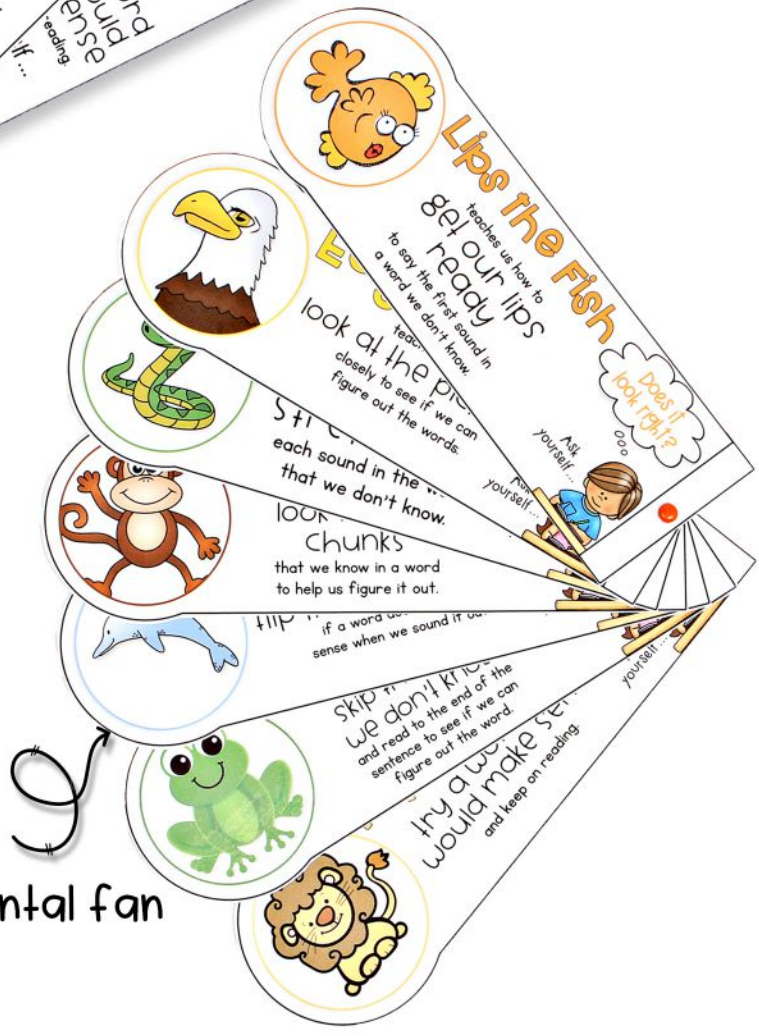 ord
ould
ense
eading.
lf ...
Lips the Fish
teaches us how to
get our lips
ready
to say the first sound in
a word we don't know.
Does it
look right?
Ask
yourself ...
look at the pic
closely to see if we can
figure out the words.
yourself ...
each sound in the
that we don't know.
look
chunks
that we know in a word
to help us figure it out.
flip
if a word
sense when we sound it
skip
we don't kno
and read to the end of the
sentence to see if we can
figure out the word.
try a wo
would make se
and keep on reading.
yourself ...
ntal fan